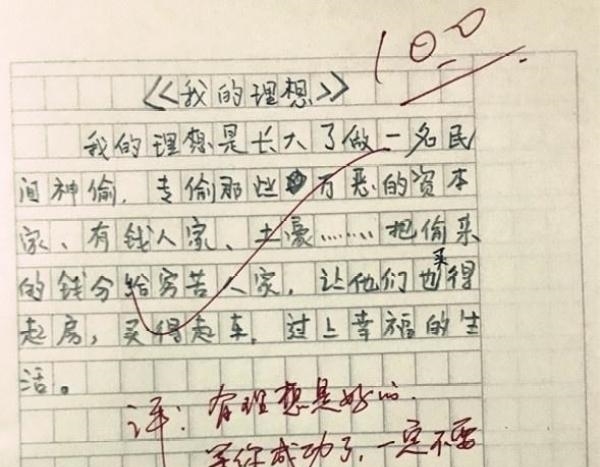 100
《我的理想》
我的理想是长大了做一名民
间神偷，专偷那些万恶的资本
家、有钱人家、土豪……把偷来
的钱分给穷苦人家，让他们也买得
起房，买得起车，过上幸福的生
活。
评：有理想是好的。
等你成功了，一定不要